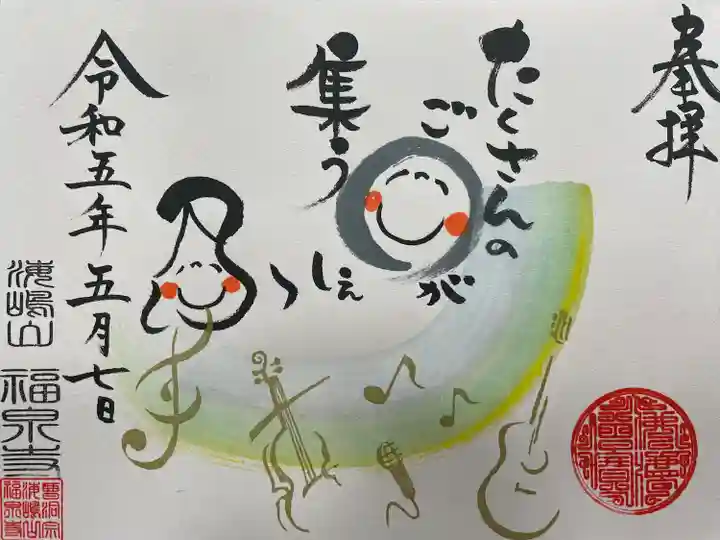 奉拝
たくさんの
ご
が
集う
令和五年五月七日
海嶋山 福泉寺
曹洞宗
海嶋山
福泉寺